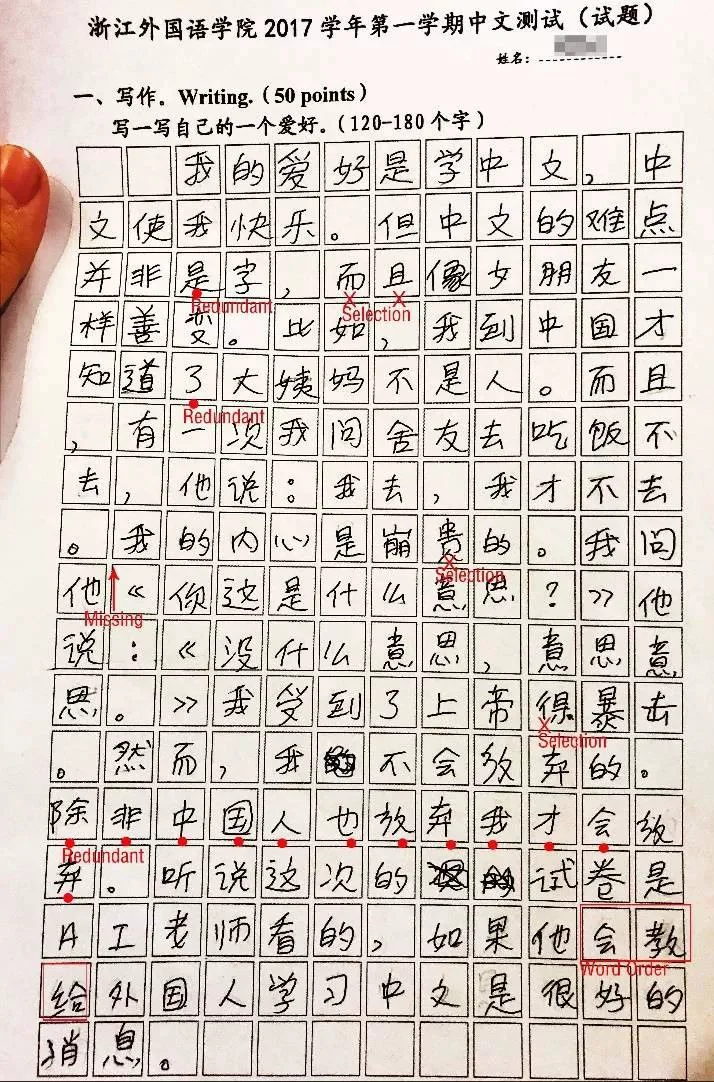 浙江外国语学院2017学年第一学期中文测试（试题）
姓名：
一、写作。Writing.（50 points）
写一写自己的一个爱好。（120-180个字）
我的爱好是学中文，中
文使我快乐。但中文的难点
并非是字，而且像女朋友一
Redundant Selection
样善变。比如，我到中国才
知道了大姨妈不是人。而且
Redundant
，有一次我问舍友去吃饭不
去，他说：我去，我才不去
。我的内心是崩贵的。我问
Selection
他《你这是什么意思？》他
Missing
说：《没什么意思，意思意
思。》我受到了上帝得暴击
Selection
。然而，我不会放弃的。
除非中国人也放弃我才会放
Redundant
弃。听说这次的试卷是
AI老师看的，如果他会教
Word Order
给外国人学习中文是很好的
消息。